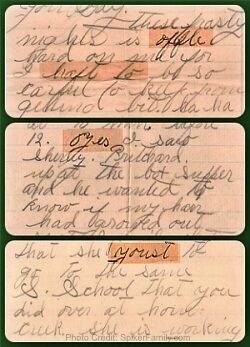 you say.
these nasty
nights is offle
hard on me for
I haft to be so
careful to keep from
getting bit. ha ha
12. oyes I saw
Sherley Pritchard
up at the box supper
and he wanted to
know if my hair
had
out
that she youst to
go to the same
S. School that you
did over at home
Creek she is working
Photo Credit: SpikerFamily.com